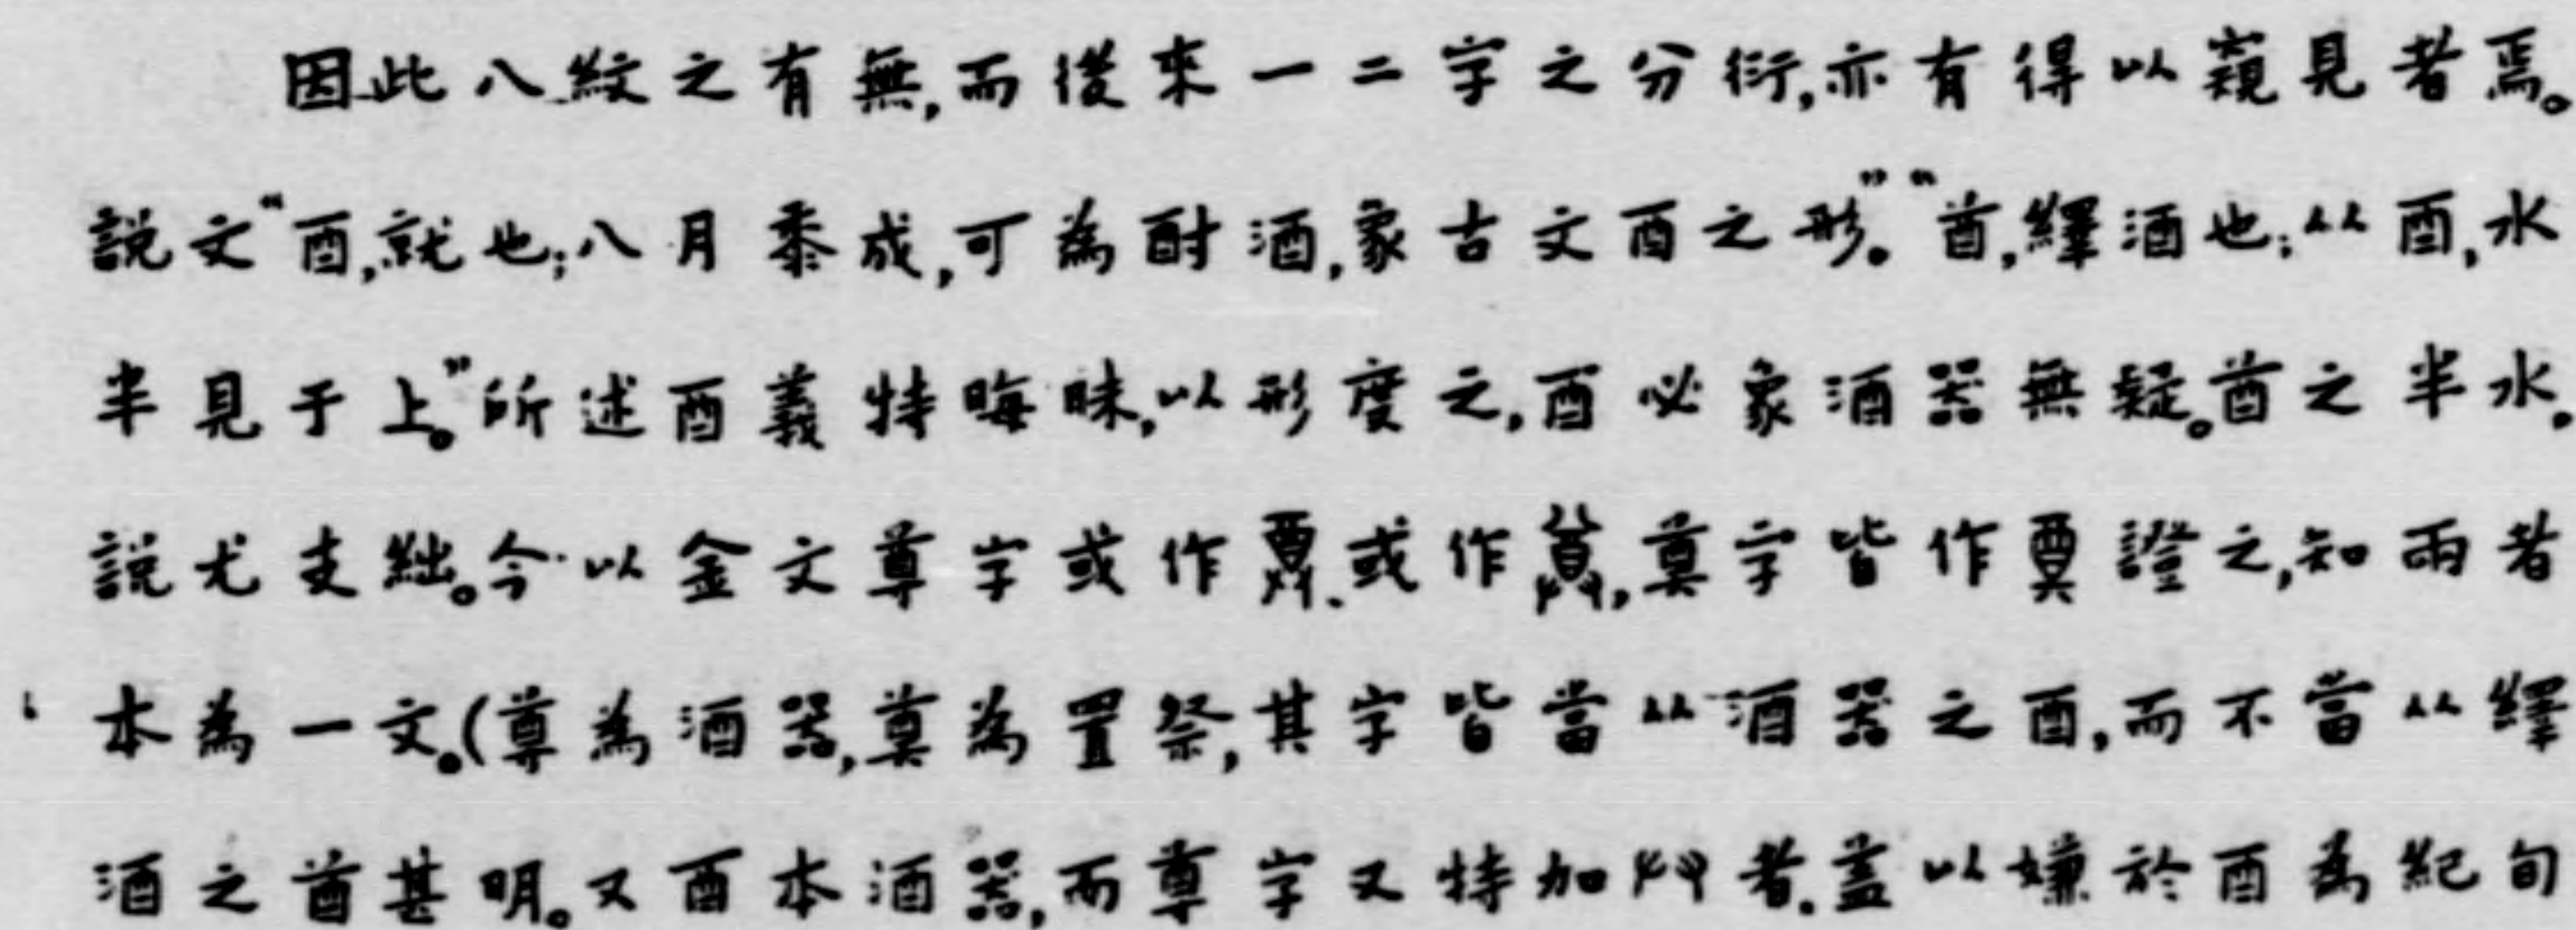 因此八紋之有無,而後來一二字之分衍,亦有得以窺見者焉。
說文“酉,就也;八月黍成,可為酎酒,象古文酉之形。”“酋,繹酒也;从酉,水
半見于上。”所述酉義特晦昧,以形度之,酉必象酒器無疑。酋之半水,
說尤支絀。今以金文尊字或作、或作,奠字皆作證之,知兩者
本為一文。(尊為酒器,奠為置祭,其字皆當从酒器之酉,而不當从繹
酒之酋甚明。又酉本酒器,而尊字又特加廾者,蓋以嫌於酉為紀旬